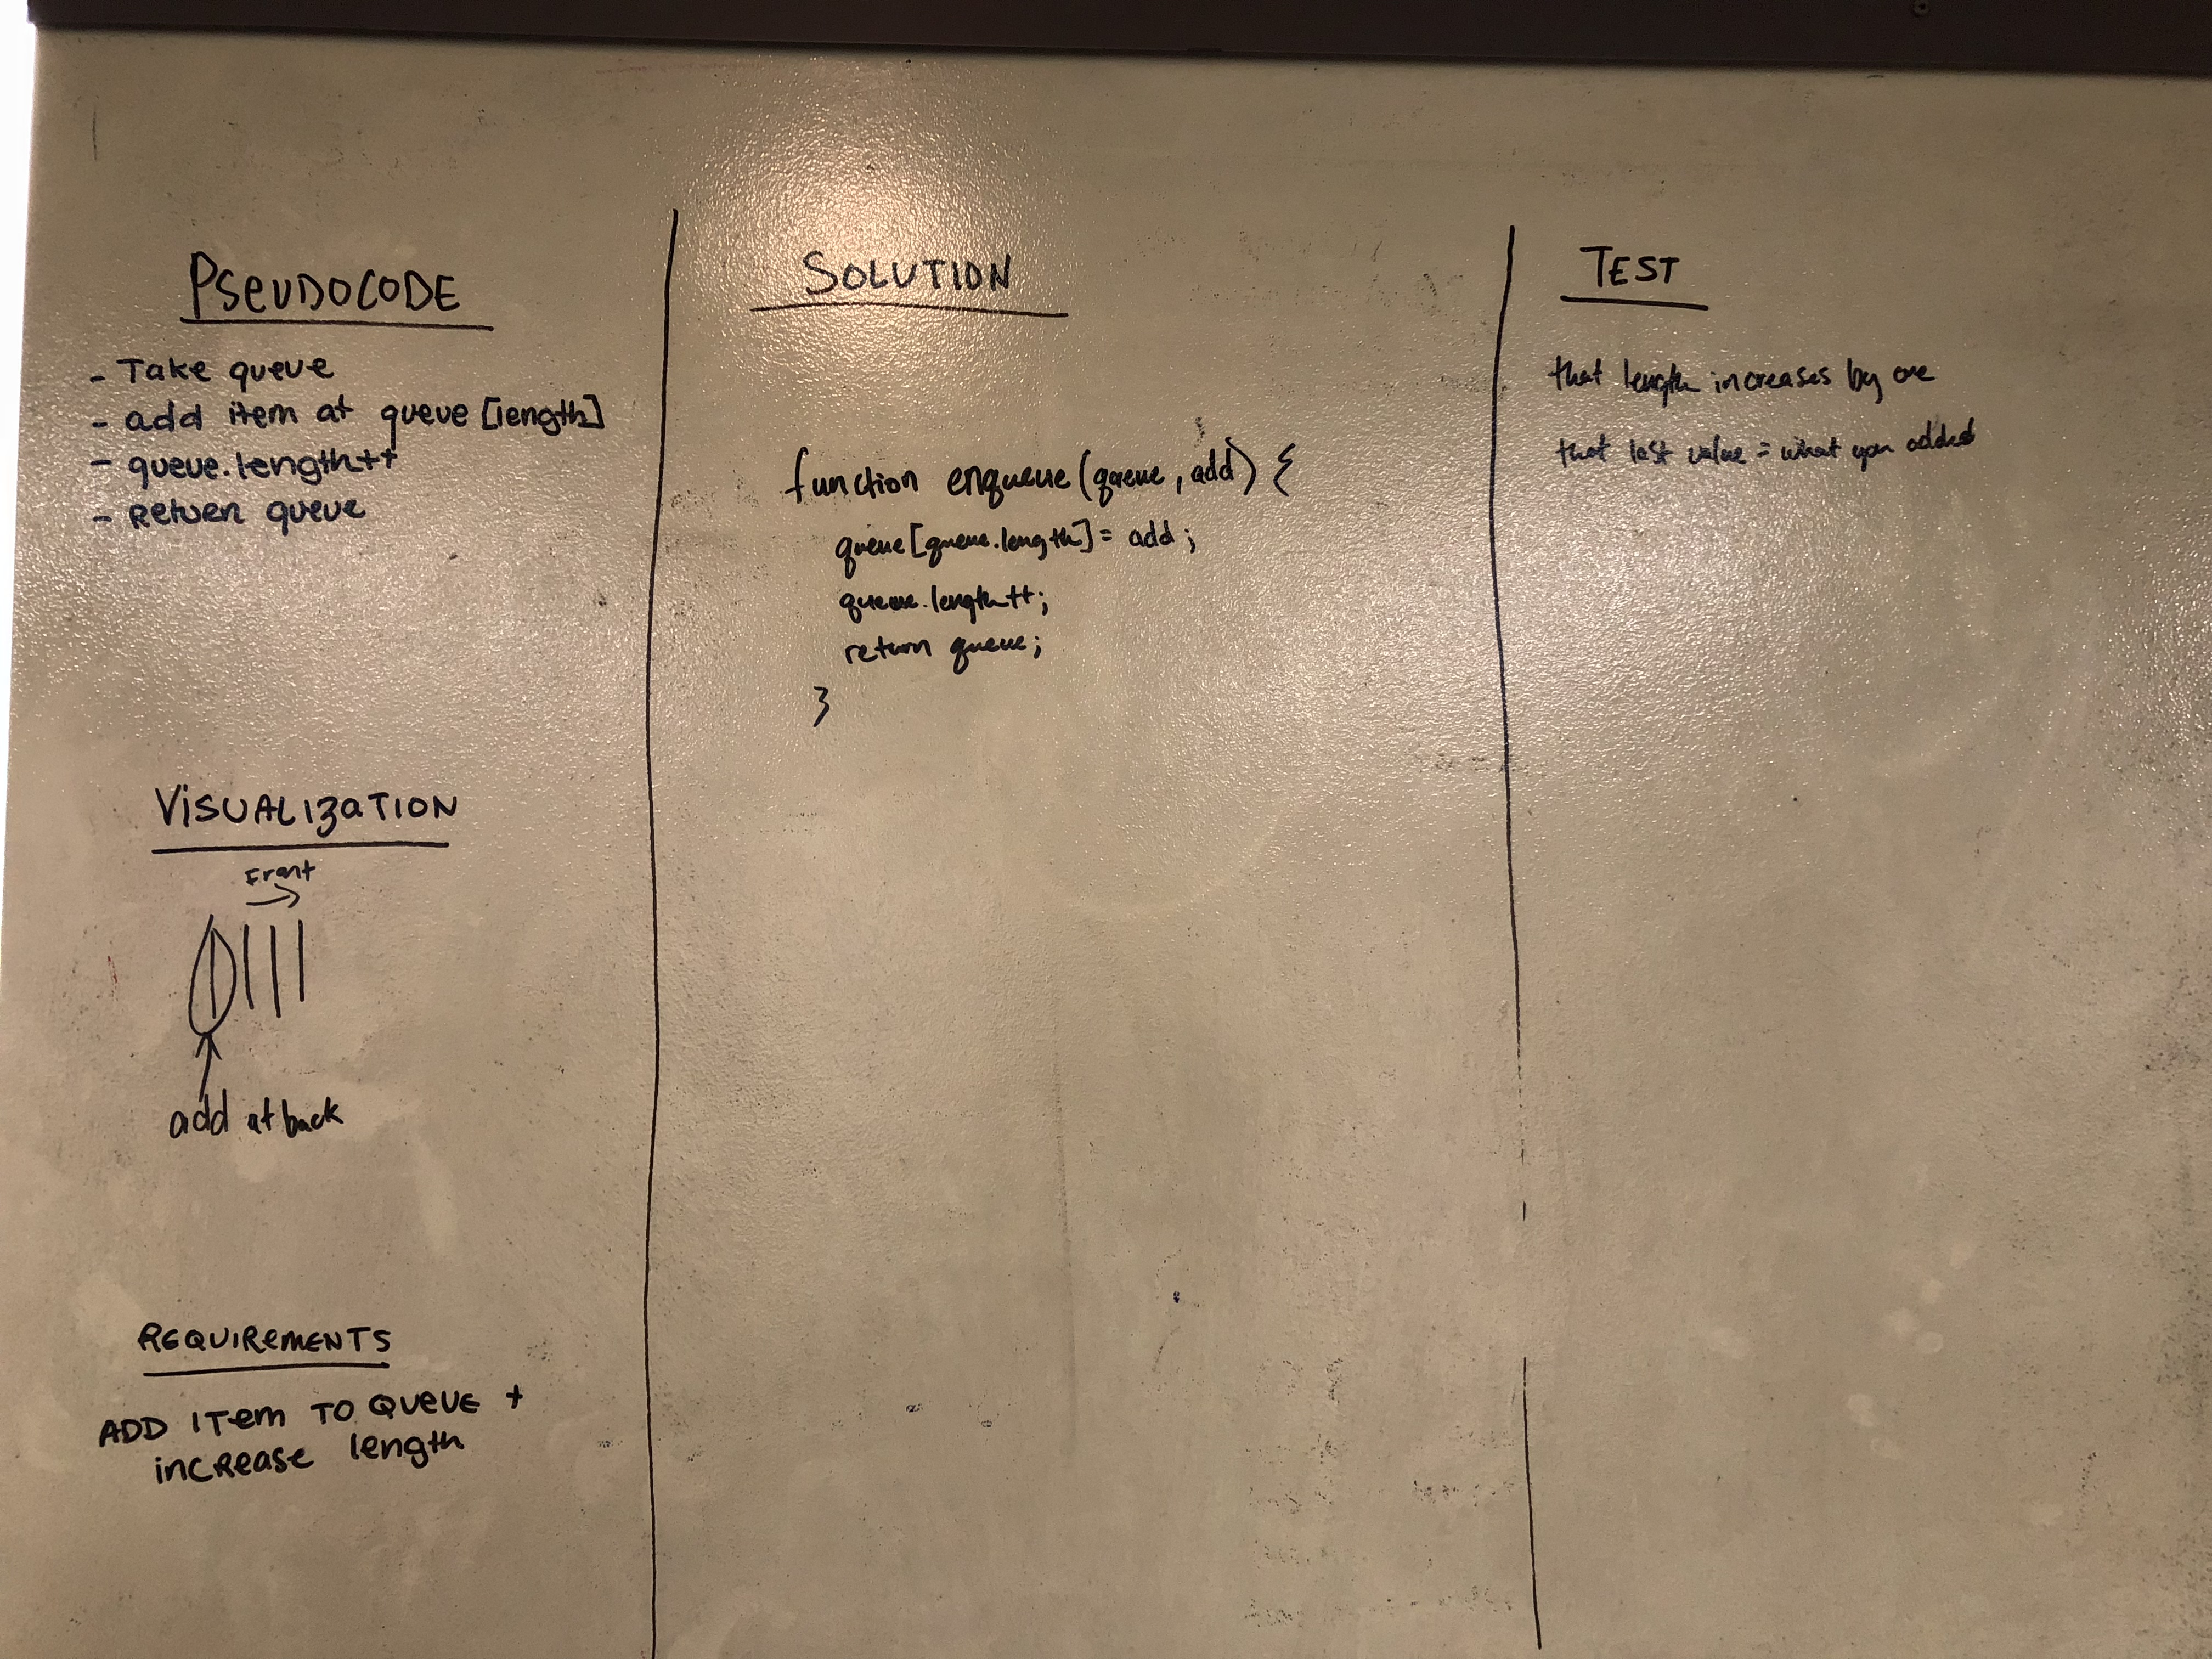 PSEUDOCODE
- Take queue
- add item at queue [length]
- queue.length++
- Return queue
VISUALIZATION
Front
add at back
REQUIREMENTS
ADD ITEM TO QUEUE +
INCREASE length
SOLUTION
function enqueue (queue, add) {
queue[queue.length] = add;
queue.length++;
return queue;
}
TEST
that length increases by one
that last value = what you added